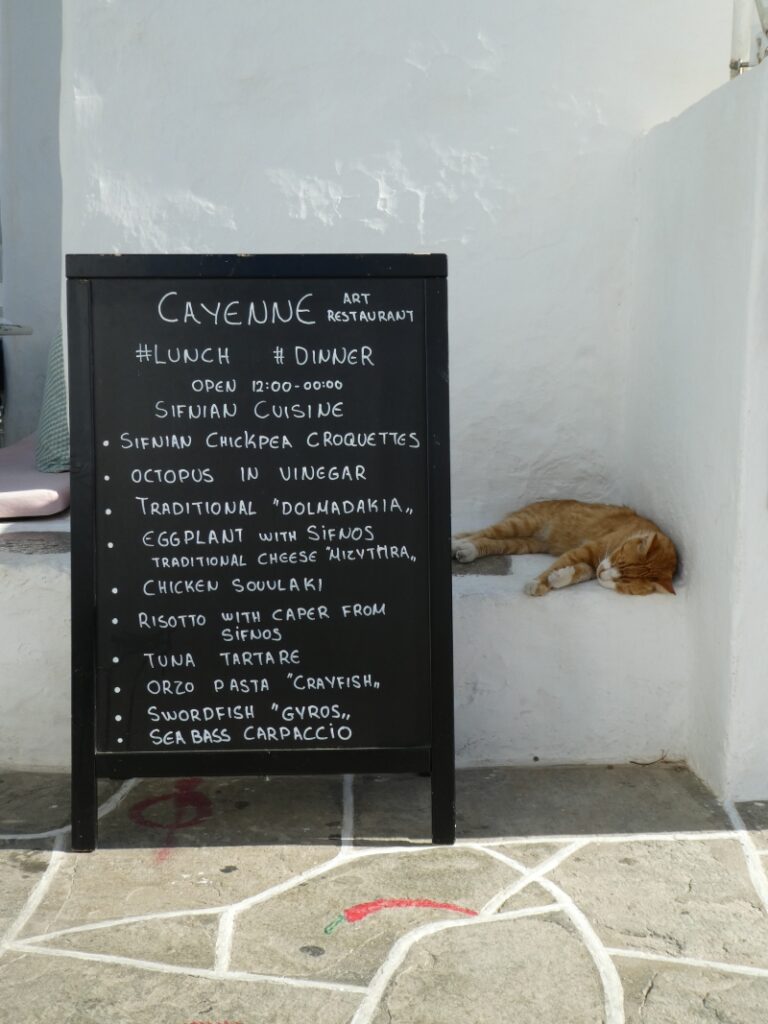 CAYENNE ART RESTAURANT
#LUNCH # DINNER
OPEN 12:00-00:00
SIFNIAN CUISINE
• SIFNIAN CHICKPEA CROQUETTES
• OCTOPUS IN VINEGAR
• TRADITIONAL "DOLMADAKIA„
• EGGPLANT WITH SIFNOS
TRADITIONAL CHEESE "MIZYTHRA„
• CHICKEN SOUULAKI
• RISOTTO WITH CAPER FROM
SIFNOS
• TUNA TARTARE
• ORZO PASTA "CRAYFISH„
• SWORDFISH "GYROS„
• SEA BASS CARPACCIO